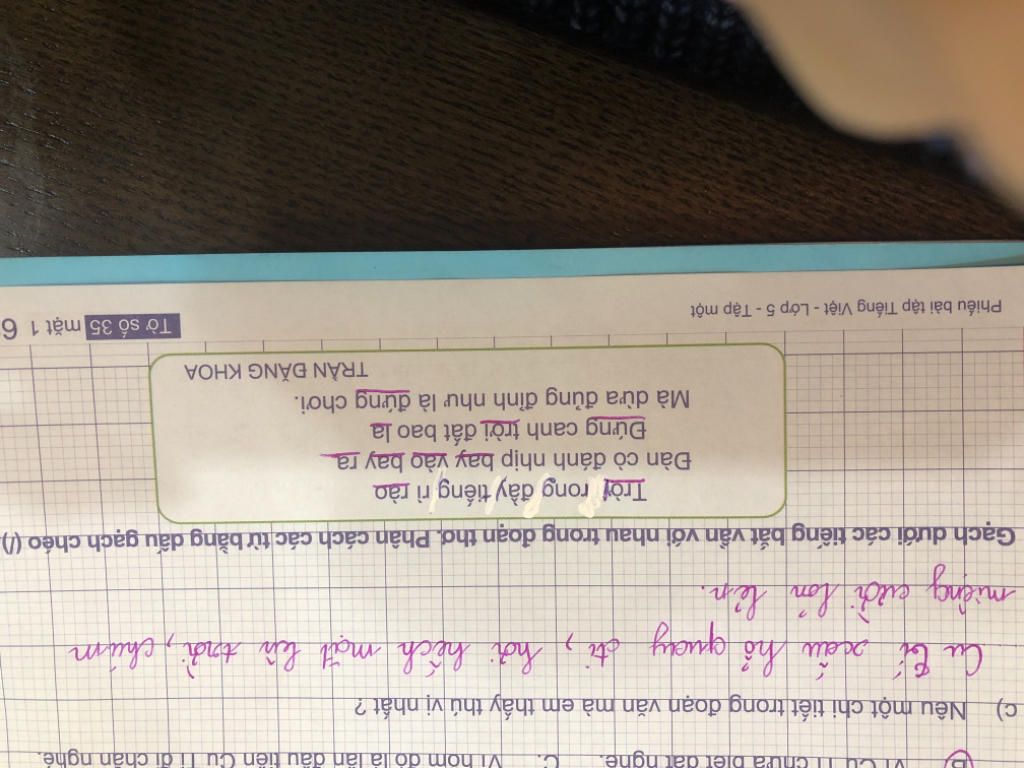 b) Vì Cu Tí chưa biết dắt nghé. C. Vì hôm đó là lần đầu tiên Cu Tí đi chăn nghé.
c) Nêu một chi tiết trong đoạn văn mà em thấy thú vị nhất ?
Cu Tí xấu hổ quay đi, hơi hếch mặt lên trời, chúm
miệng cười lỏn lẻn.
Gạch dưới các tiếng bắt vần với nhau trong đoạn thơ. Phân cách các từ bằng dấu gạch chéo (/)
Trời trong đầy tiếng rì rào
Đàn cò đánh nhịp bay vào bay ra
Đứng canh trời đất bao la
Mà dừa đủng đỉnh như là đứng chơi.
TRẦN ĐĂNG KHOA
Phiếu bài tập Tiếng Việt - Lớp 5 - Tập một Tờ số 35 mặt 1 6